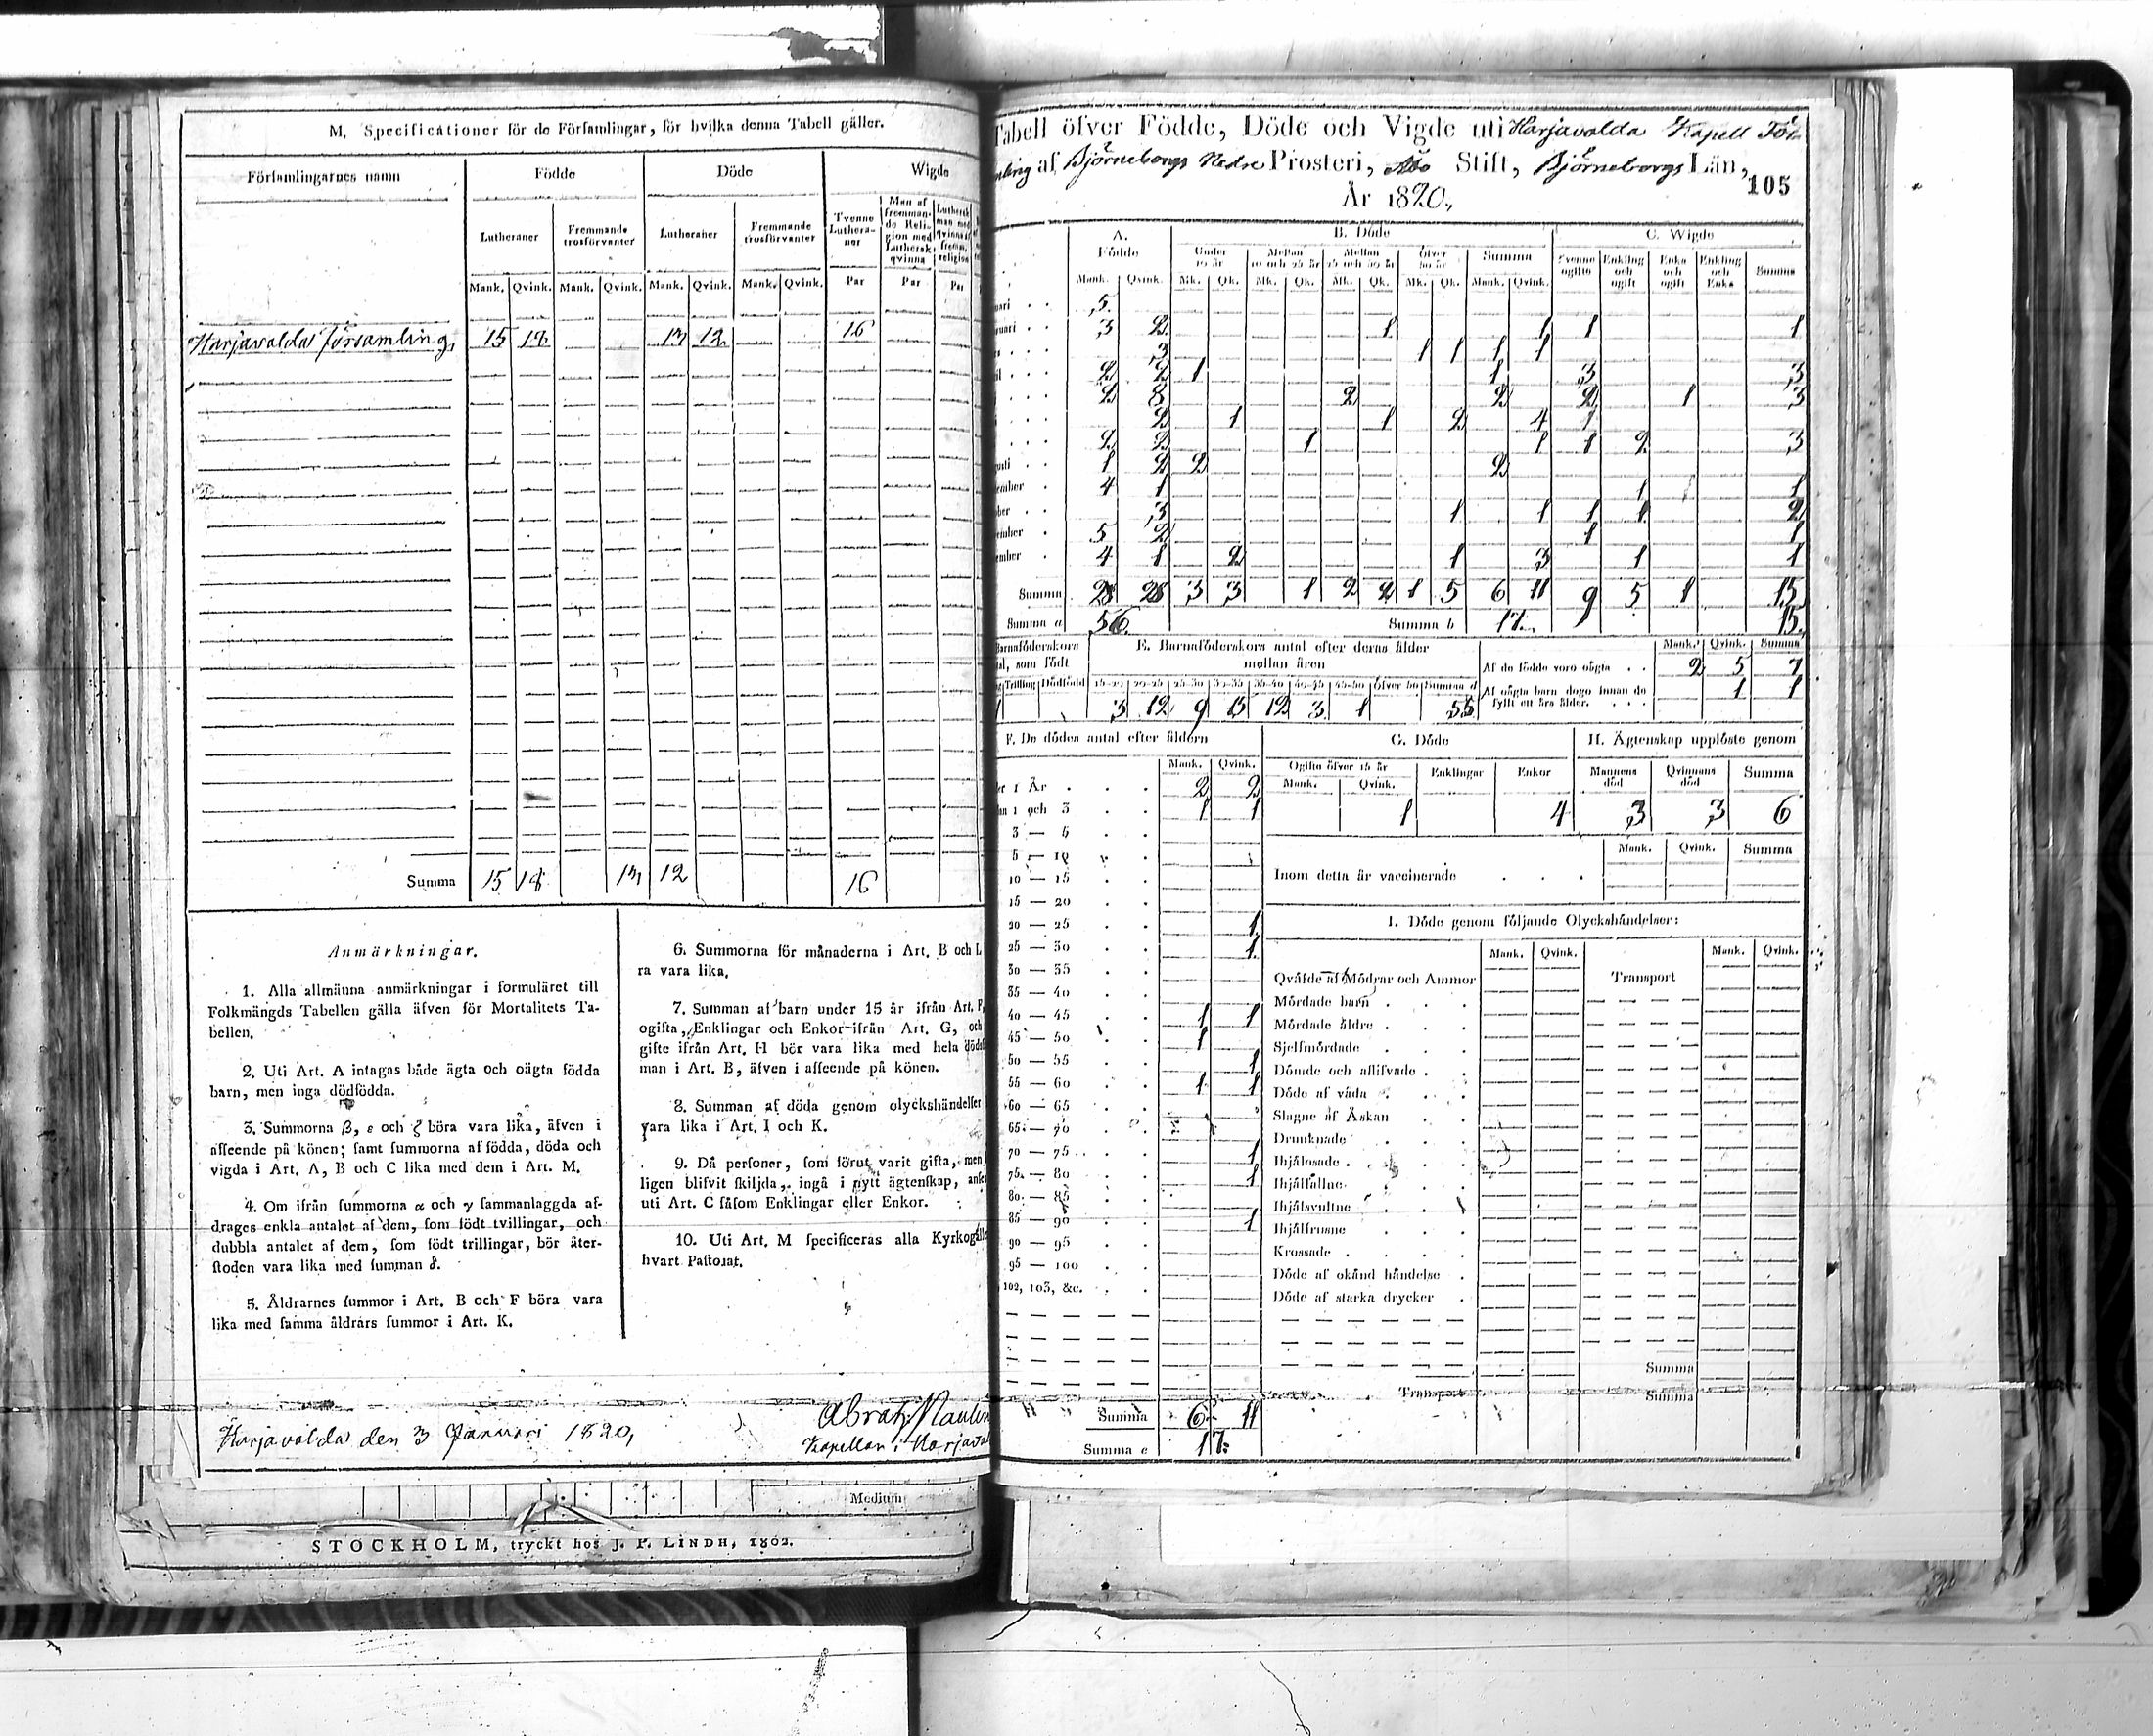 M. Specificationer för de Församlingar, för hvilka denna Tabell gäller.
Församlingarnes namn Födde Döde Wigde
Lutheraner Fremmande trosförvanter Lutheraner Fremmande trosförvanter Tvenne Lutheraner Man af fremmande Religion med Luthersk qvinna
Mank. Qvink. Mank. Qvink. Mank. Qvink. Mank. Qvink. Par Par Par
Harjavalda församling, 15 18 13 12 16
Summa 15 18 13 12 16
Anmärkningar.
1. Alla allmänna anmärkningar i formuläret till
Folkmängds Tabellen gälla äfven för Mortalitets Ta-
bellen.
2. Uti Art. A intagas både ägta och oägta födda
barn, men inga dödfödda.
3. Summorna β, ε och ζ böra vara lika, äfven i
afseende på könen; samt summorna af födda, döda och
vigda i Art. A, B och C lika med dem i Art. M.
4. Om ifrån summorna α och γ sammanlaggda af-
drages enkla antalet af dem, som födt tvillingar, och
dubbla antalet af dem, som födt trillingar, bör åter-
stoden vara lika med summan δ.
5. Åldrarnes summor i Art. B och F böra vara
lika med samma åldrars summor i Art. K.
6. Summorna för månaderna i Art. B och L
ra vara lika.
7. Summan af barn under 15 år ifrån Art. F,
ogifta, Enklingar och Enkor ifrån Art. G, och
gifte ifrån Art. H bör vara lika med hela döds
man i Art. B, äfven i afseende på könen.
8. Summan af döda genom olyckshändelser
vara lika i Art. I och K.
9. Då personer, som förut varit gifta, men
ligen blifvit skiljda, ingå i nytt ägtenskap,
uti Art. C såsom Enklingar eller Enkor.
10. Uti Art. M specificeras alla
hvart Pastorat.
Harjavalda den 3 Januari 1820,
Kapellan i
Medium
STOCKHOLM, tryckt hos J. P. LINDH, 1802.
Tabell öfver Födde, Döde och Vigde uti Harjavalda Kapell För
mling af Björneborgs Nedre Prosteri, Åbo Stift, Björneborgs Län,
År 1820, 105
A. Födde B. Döde C. Wigde
Under 10 år Mellan 10 och 25 år Mellan 25 och 50 år Öfver 50 år Summa Tvenne ogifta Enkling och ogift Enka och ogift Enkling och Enka Summa
Mank. Qvink. Mk. Qk. Mk. Qk. Mk. Qk. Mk. Qk. Mank. Qvink.
uari 5
ruari 3 2 1 1 1 1
3 1 1 1 1
il 2 2 1 1 3 3
2 3 2 2 2 1 3
2 1 1 2 4 1
2 2 1 1 1 2 3
usti 1 2 2 2
ember 4 1 1 1
ber 3 1 1 1 1 2
ember 5 2 1 1
ember 4 1 2 1 3 1 1
Summa 28 28 3 3 1 2 2 1 5 6 11 9 5 1 15
Summa a 56. Summa b 17. 15.
Barnaföderskors
tal, som födt
Trilling Dödfödd
E. Barnaföderskors antal efter deras ålder
mellan åren
15-20 20-25 25-30 30-35 35-40 40-45 45-50 Öfver 50 Summa d
3 12 9 15 12 3 1 55
Mank. Qvink. Summa
Af de födde voro oägta 2 5 7
Af oägta barn dogo innan de
fyllt ett års ålder. 1 1
F. De dödes antal efter åldern
Mank. Qvink.
1 År 2 2
1 och 3 1 1
3 — 5
5 — 10
10 — 15
15 — 20
20 — 25 1
25 — 30 1
30 — 35
35 — 40
40 — 45 1 1
45 — 50 1
50 — 55 1
55 — 60 1 1
60 — 65
65 — 70
70 — 75 1
75 — 80 1
80 — 85
85 — 90 1
90 — 95
95 — 100
102, 103, &c.
Summa 6 11
Summa e 17.
G. Döde
Ogifta öfver 15 år Enklingar Enkor
Mank. Qvink.
1 4
H. Ägtenskap upplöste genom
Mannens död Qvinnans död Summa
3 3 6
Mank. Qvink. Summa
Inom detta år vaccinerade
I. Döde genom följande Olyckshändelser:
Mank. Qvink. Mank. Qvink.
Qväfde af Mödrar och Ammor Transport
Mördade barn
Mördade äldre
Sjelfmördade
Dömde och aflifvade
Döde af våda
Slagne af Åskan
Drunknade
Ihjälosade
Ihjälfallne
Ihjälsvultne
Ihjälfrusne
Krossade
Döde af okänd händelse
Döde af starka drycker
Summa
Transport Summa